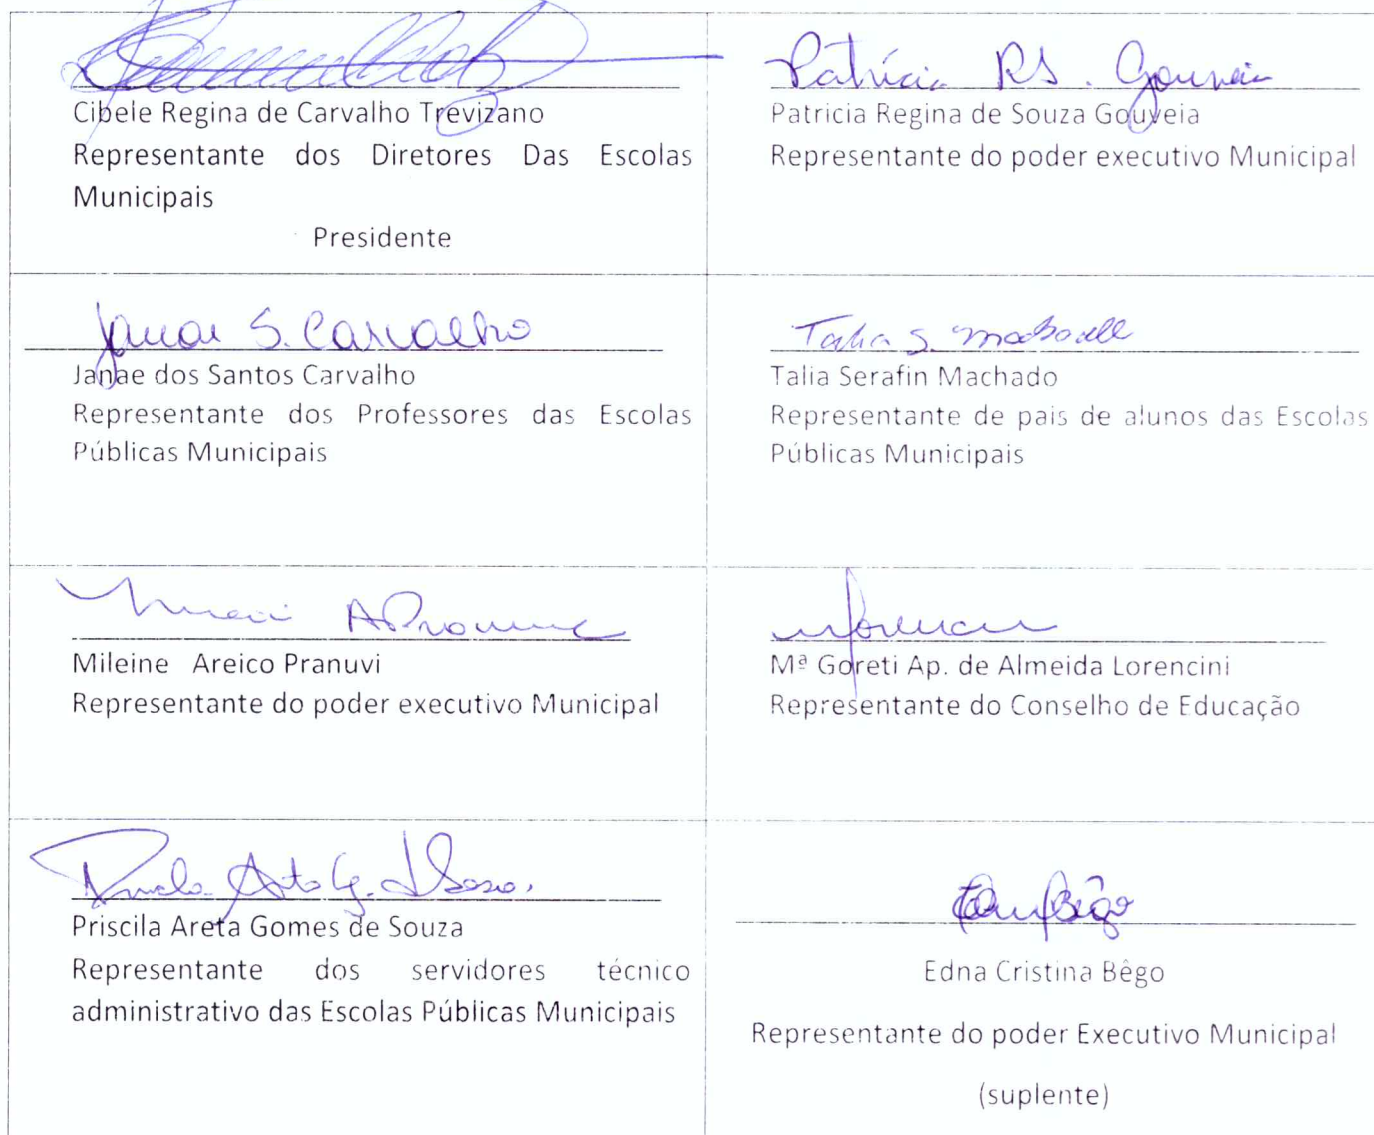 Cibele Regina de Carvalho Trevizano
Representante dos Diretores Das Escolas
Municipais
Presidente
Patrícia RS. Gouveia
Patricia Regina de Souza Gouveia
Representante do poder executivo Municipal
Janae S. Carvalho
Janae dos Santos Carvalho
Representante dos Professores das Escolas
Públicas Municipais
Talia S. Machado
Talia Serafin Machado
Representante de pais de alunos das Escolas
Públicas Municipais
Mileine Areico Pranuvi
Representante do poder executivo Municipal
Mª Goreti Ap. de Almeida Lorencini
Representante do Conselho de Educação
Priscila Areta Gomes de Souza
Representante dos servidores técnico
administrativo das Escolas Públicas Municipais
Edna Cristina Bêgo
Representante do poder Executivo Municipal
(suplente)